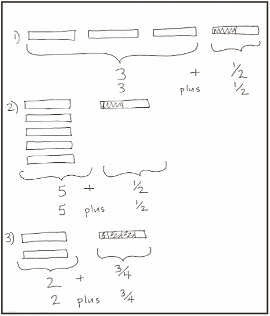 1)
3 + 1/2
3 plus 1/2
2)
5 + 1/2
5 plus 1/2
3)
2 + 3/4
2 plus 3/4